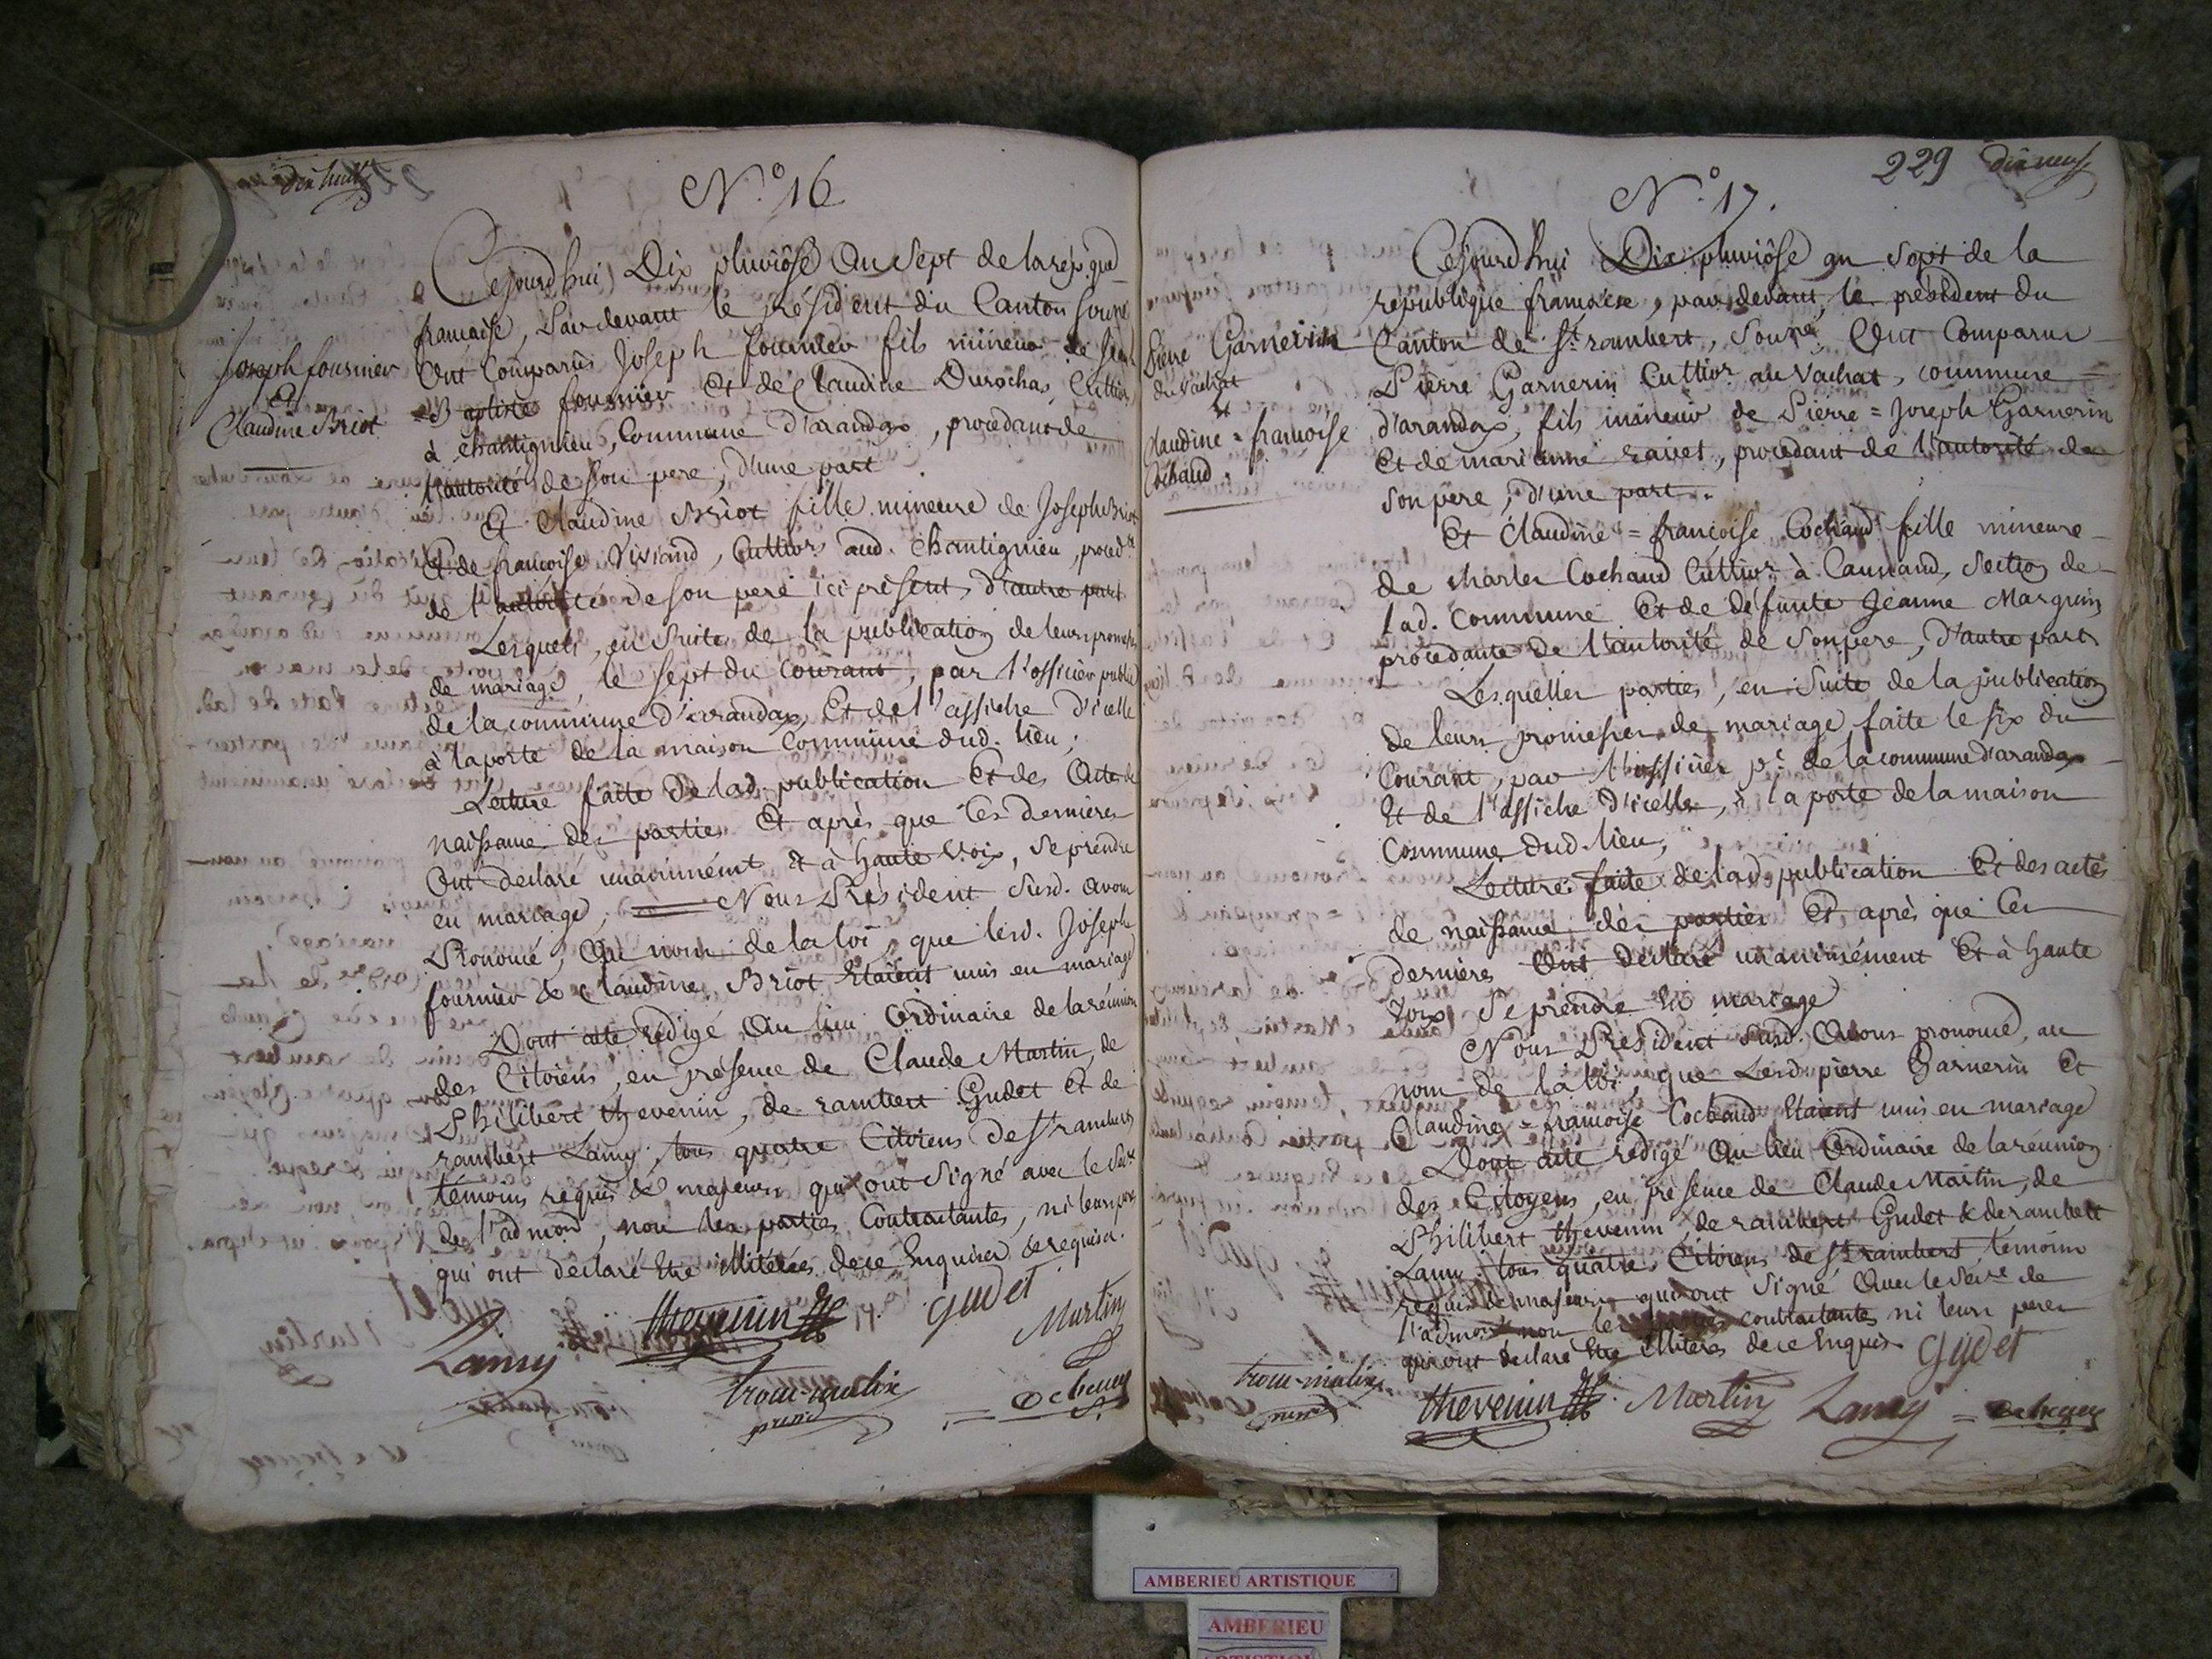 dix huit
N.º 16
Joseph fournier
et
Claudine Briot
Cejourd'hui Dix pluviôse an sept de la rep. que
francaise, Par devant le président du Canton sousné
Ont Comparus Joseph fournier fils mineur de Jean
=B aptiste fournier et de Claudine Durochas, Cultivr
à chantignieu, Commune d'arandas, procedant de
l'autorité de son pere, d'une part.
Et Claudine Briot fille mineure de Joseph Briot
Et de francoise Viviand, Cultivrs aud. Chantignieu, proced.te
de l'autorité de son peré ici présent, d'autre part
Lesquels, en suite de la publication de leurs promesses
de mariage, le sept du Courant, par l'officier public
de la commune d'arandas, Et de l'affiche d'icelle
à la porte de la maison Commune dud. lieu;
Lecture faite de lad. publication Et des Actes de
naissance des parties Et après que ces dernières
Ont declaré unanimément & à haute voix, se prendre
en mariage; Nous Président susd. avons
Pronocé, au nom de la loi, que lesd. Joseph
fournier & Claudine Briot Etaient unis en mariage
Dont acte rédigé au lieu ordinaire de la réunion
des Citoiens, en présence de Claude Martin, de
Philibert thevenin, de rambert Gudet et de
rambert Lamy, tous quatre Citoiens de St rambert
témoins requis & majeurs qui ont signé avec le Secre
de l'admon, non les parties Contractantes, ni leurs peres
qui ont declaré Etre illitérés de ce Enquis & requis.
thevenin Gudet Martin
Lamy trocu-mulix
presid
= Debeney
229 dix neuf
N.º 17.
Pierre Garnerin
du Vachat
et
Claudine = francoise
Cochaud.
Cejourd'hui Dix pluviôse an sept de la
république francaise, par devant le president du
Canton de St rambert, Sousné, Ont Comparus
Pierre Garnerin Cultivr au Vachat, commune
d'arandas, fils mineur de Pierre = Joseph Garnerin
Et de marianne ravet, procedant de l'autorité de
son père, d'une part.
Et Claudine = françoise Cochaud fille mineure
de charles Cochaud Cultivr à Caunand, Section de
lad. Commune Et de défunte Jeanne Marguin
procedante de l'autorité de son pere, d'autre part
Lesquelles parties, en suite de la publication
de leurs promesses de mariage faite le six du
Courant, par l'officier pc de la commune d'arandas
Et de l'affiche d'icelle, à la porte de la maison
Commune dud. lieu;
Lecture faite de lad. publication Et des actes
de naissance des parties Et après que ces
dernières Ont declaré unanimément Et à haute
voix se prendre en mariage
Nous Président susd. Avons pronocé, au
nom de la loi, que lesd. pierre Garnerin et
Claudine = françoise Cochaud Etaient unis en mariage
Dont acte rédigé au lieu Ordinaire de la réunion
des Citoyens, en présence de Claude Martin, de
Philibert thevenin, de rambert Gudet & de rambert
Lamy tous quatre Citoiens de St rambert témoins
requis & majeurs qui ont signé avec le Secre de
l'admon non les parties contractantes ni leurs peres
qui ont declaré Etre illitérés de ce Enquis. Gudet
trocu-mulix
presid
thevenin Martin Lamy = Debeney
AMBERIEU ARTISTIQUE
AMBERIEU
ARTISTIQUE